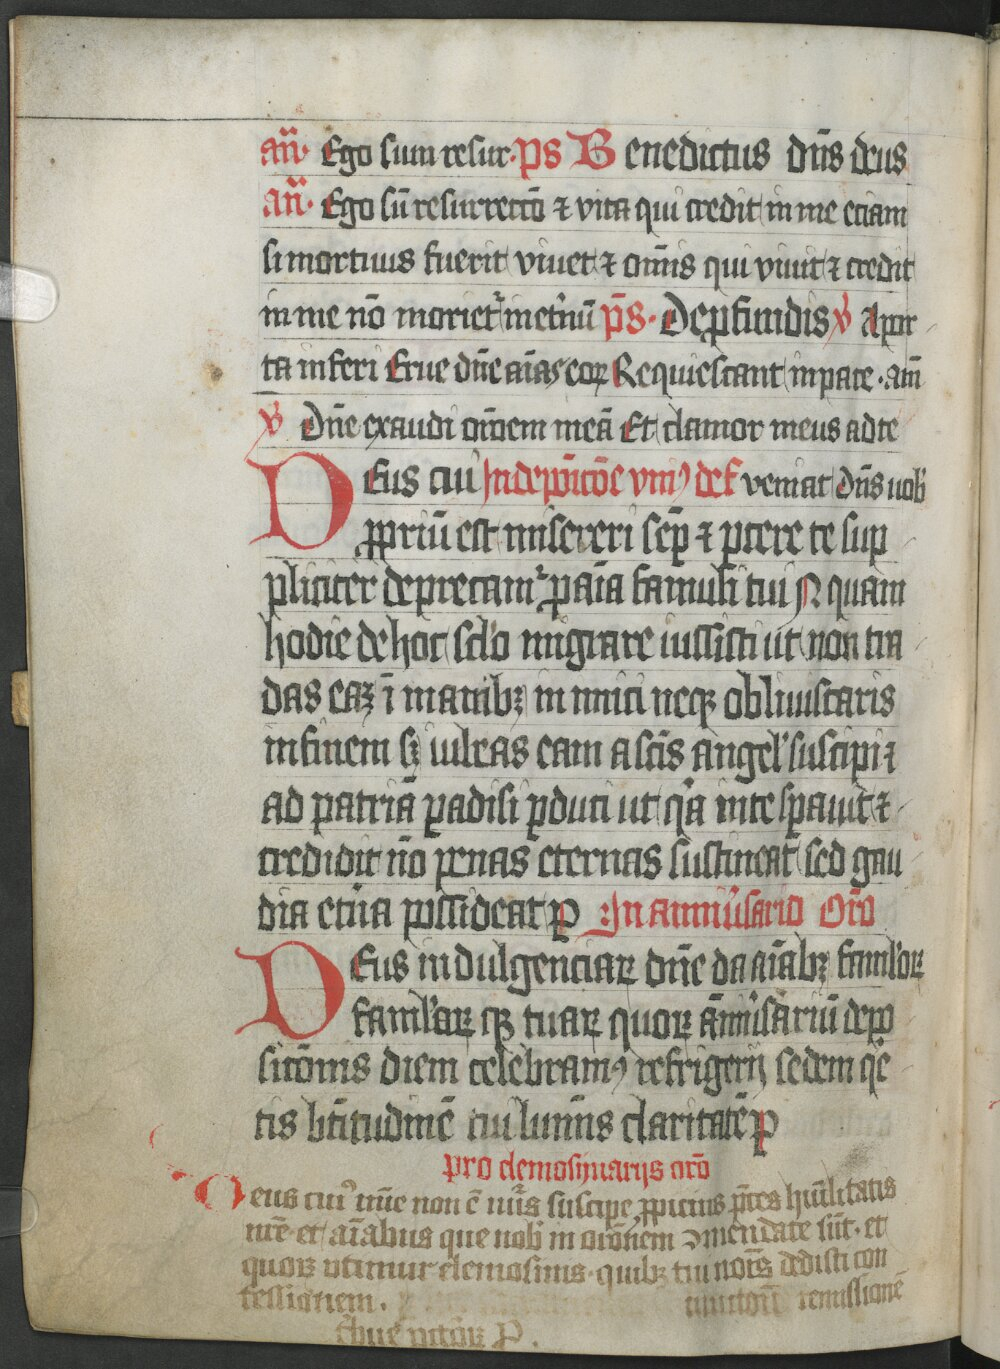 an̄· Ego sum resur· ps Benedictus dn̄s deus
an̄· Ego sū resurrectō ⁊ vita qui credit in me etiam
si mortuus fuerit viuet ⁊ om̄is qui viuit ⁊ credit
in me nō morietᷣ in et̓nū ps̄· De ꝓfundis ℣ A por
ta inferi Erue dn̄e aīas eoꝝ Requiescant in pace · am̄
℣ Dn̄e exaudi or̄oem meā Et clamor meus ad te
DEus cui In deposic̄oe vniꝰ def veniat Dn̄s uob̓
ꝓpriū est misereri semꝑ ⁊ ꝑcere te sup
pliciter deprecamᷣ ꝓ aīa famuli tui N quam
hodie de hoc sclo migrare iussisti ut non tra
das eaꝫ ī manibꝫ inimici neqꝫ obliuiscaris
in finem sꝫ iubeas eam a sc̄is angel̓ suscipi ⁊
ad patriā ꝑadisi ꝑduci ut qͣa in te sꝑauit ⁊
credidit nō penas eternas sustineat sed gau
dia et̓na possideat P In anniu̓sario Or̄o
DEus indulgenciaꝝ dn̄e da aīabꝫ famloꝝ
famlaꝝ qꝫ tuaꝝ quoꝝ anniu̓sariū depo
sitōnis diem celebramꝰ refrigerij sedem qͥe
tis bt̄itudinē tui lumīs claritatē P
pro elemosinarijs orō
Deus cuiꝰ mīe non ē nūs suscipe ꝓpicius p̄ces hūilitatis
nr̄e et aīabus que nob̓ in or̄onem ꝯmendate sūt · et
quoꝝ vtimur elemosinis · quibꝫ tui noīs dedisti con
fessionem · remissionē
P ·